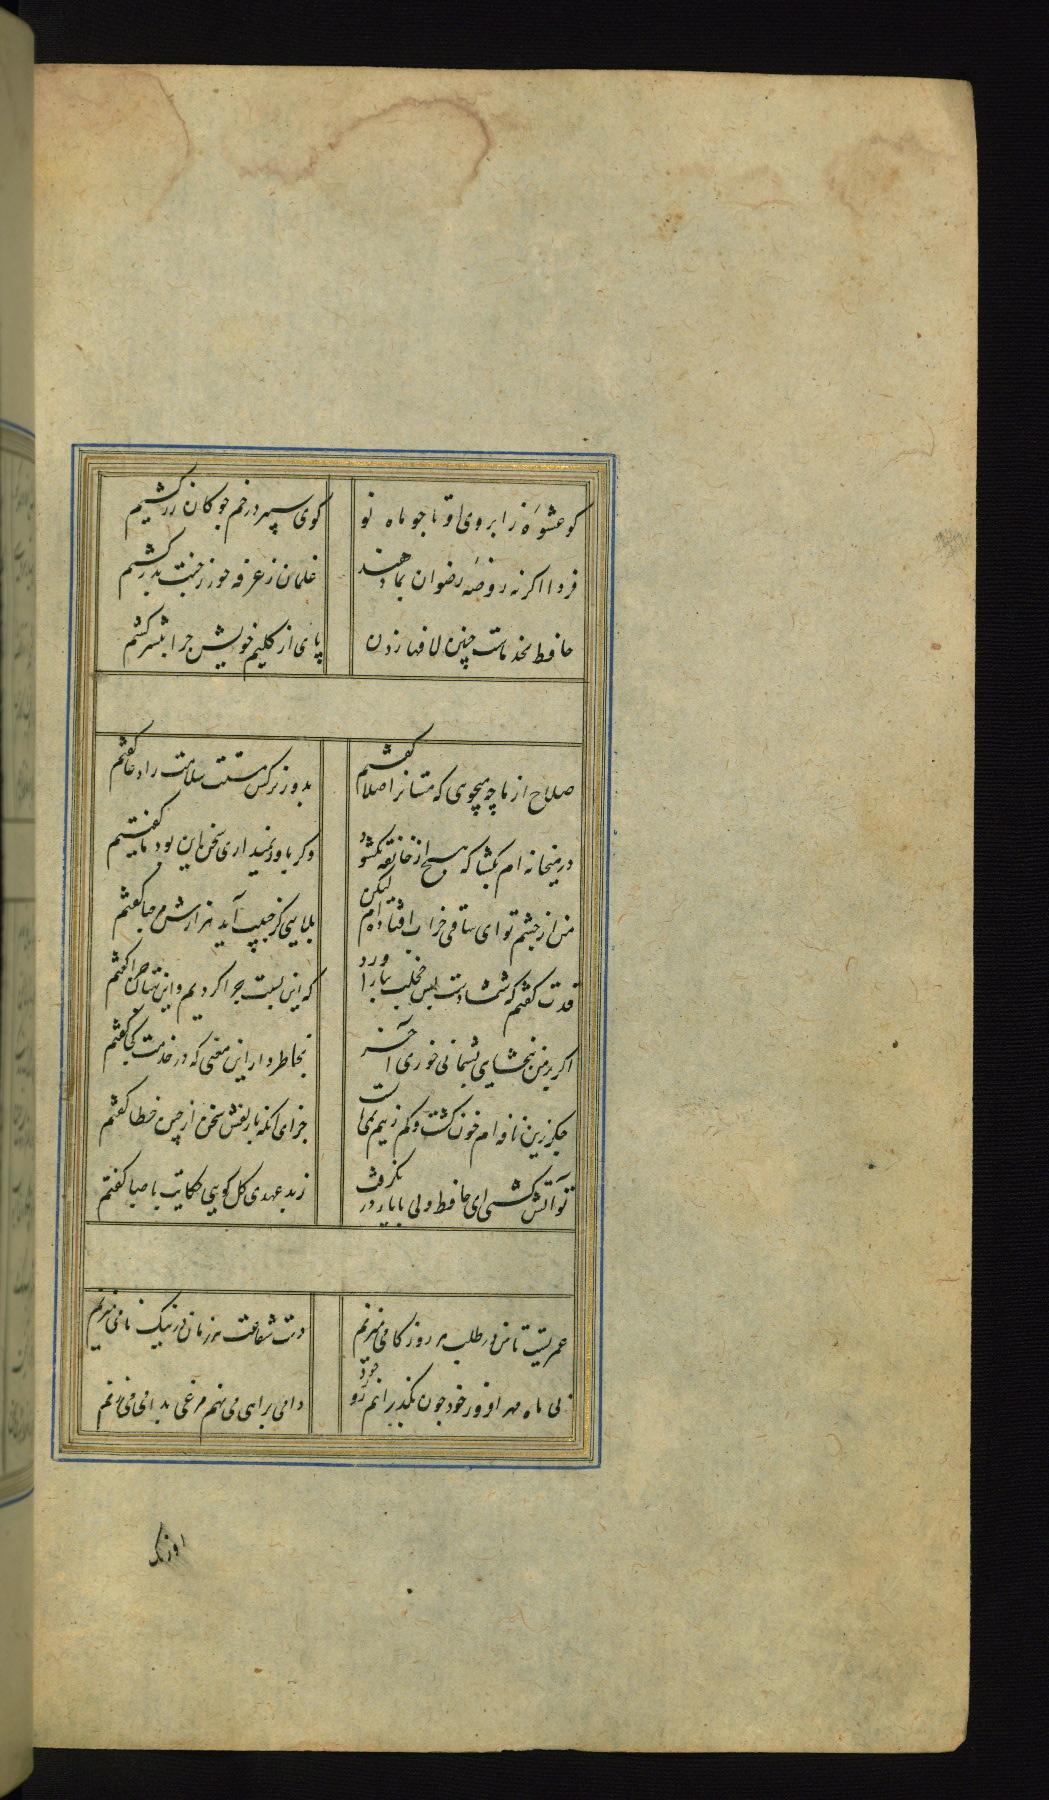 کو عشوهٔ ز ابروی او تا چو ماه نو
کوی سپهر در خم چوکان زر کشیم
فردا اکر نه روضهٔ رضوان بما دهند
غلمان ز غرفه حور ز جنت بدر کشیم
حافظ نه حد ماست چنین لافها زدن
پای از کلیم خویش چرا بیشتر کشیم
صلاح از ما چه میجوی که مستانرا صلا گفتیم
بدور نرکس مستت سلامت را دعا گفتیم
در میخانه ام بکشا که هیچ از خانقه نکشود
وکر باور نمیداری سخن این بود ما گفتیم
من از چشم تو ای ساقی خراب افتاده ام لیکن
بلایی کز حبیب آید هزارش مرحبا گفتیم
قدت گفتم که شمشادست بس خجلت ببار آورد
که این نسبت چرا کردیم و این بهتان چرا گفتیم
اکر بر من نبخشایی پشیمانی خوری آخر
بخاطر دار این معنی که در خدمت کجا گفتیم
جکر زین نافه ام خون کشت و کم زینم نمی‌
جزای آنکه با زلفش سخن از چین خطا گفتیم
تو آتش کشتی ای حافظ ولی با یار در نکرفت
ز بد عهدی کل کویی حکایت با صبا گفتیم
عمریست تا من در طلب هر روز کامی میزنم
دست شفاعت هر زمان در نیک نامی میزنم
بی ماه مهر افروز خود چون بکذرانم روز خود
دامی براهی می نهم مرغی بدامی می زنم
اورنک